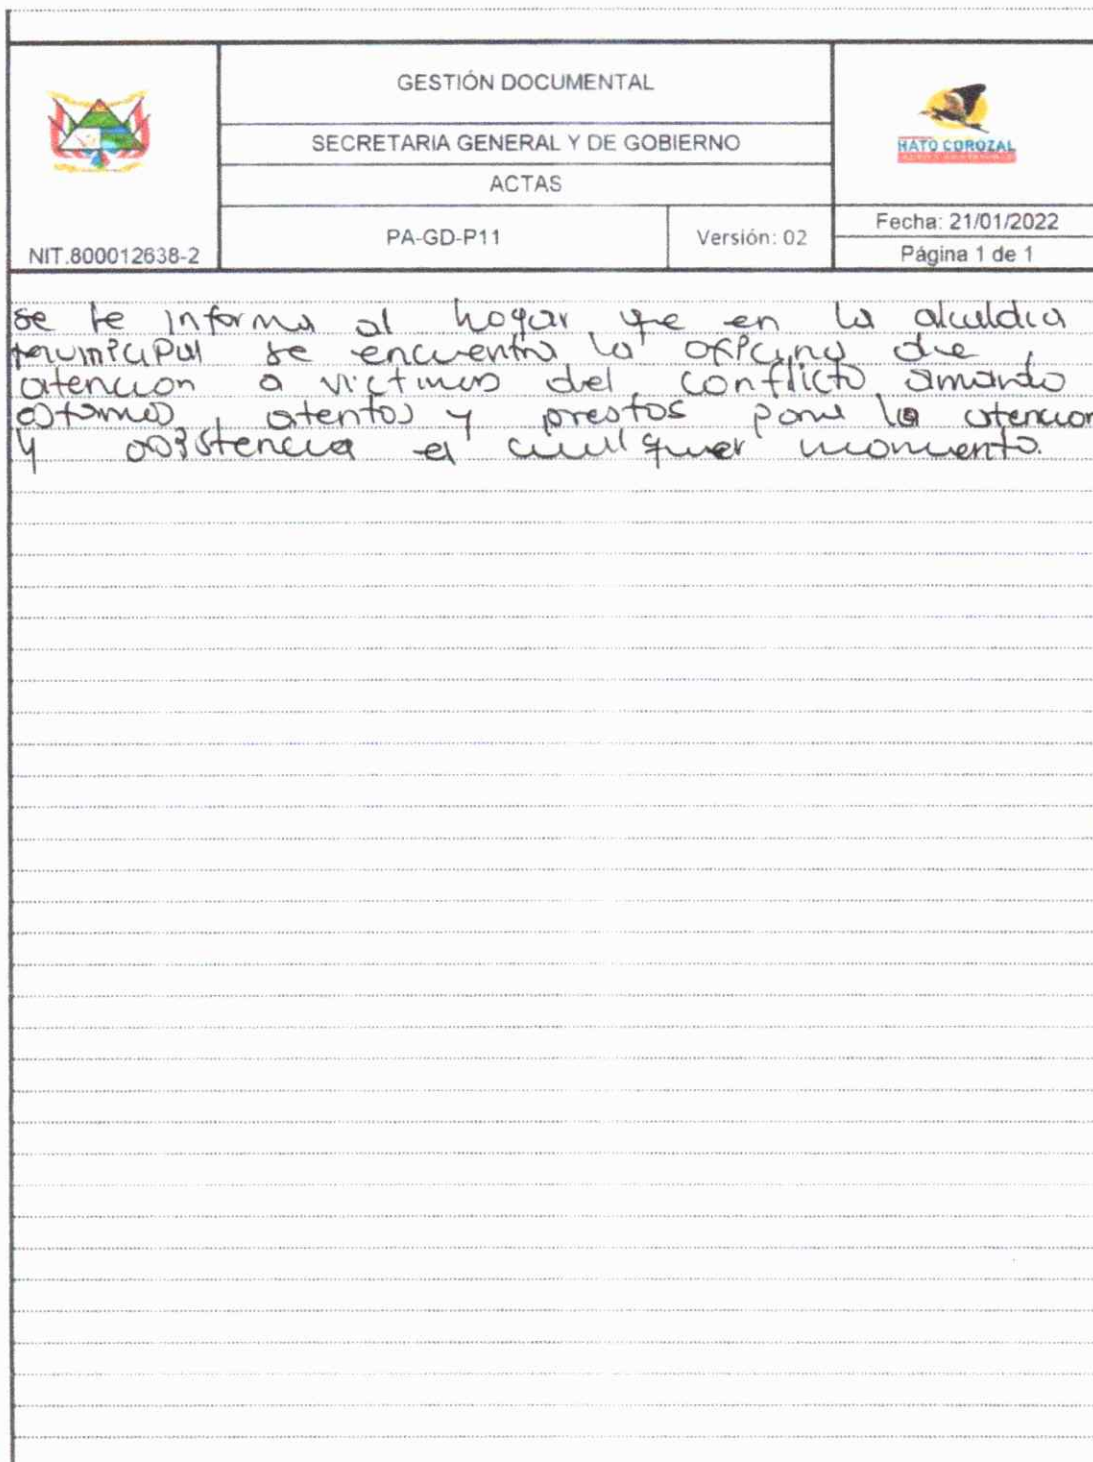 GESTIÓN DOCUMENTAL
SECRETARIA GENERAL Y DE GOBIERNO
ACTAS
PA-GD-P11
Versión: 02
NIT.800012638-2
HATO COROZAL
Fecha: 21/01/2022
Página 1 de 1
se le informa al hogar que en la alcaldia
municipal se encuentra la oficina de
atencion a victimas del conflicto armado
estamos atentos y prestos para la atencion
y asistencia en cualquier momento.